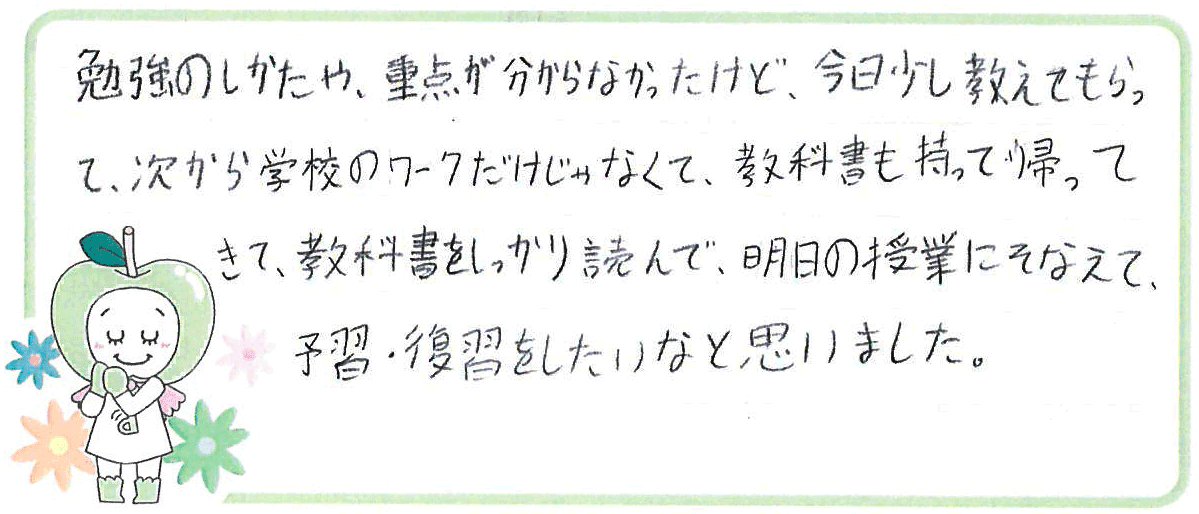 勉強のしかたや、重点が分からなかったけど、今日少し教えてもらっ
て、次から学校のワークだけじゃなくて、教科書も持って帰って
きて、教科書をしっかり読んで、明日の授業にそなえて、
予習・復習をしたいなと思いました。